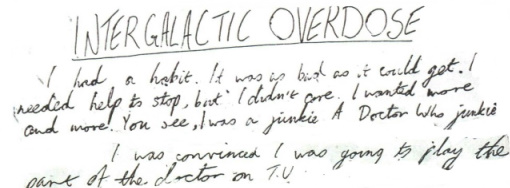 INTERGALACTIC OVERDOSE
I had a habit. It was as bad as it could get. I
needed help to stop, but I didn't care. I wanted more
and more. You see, I was a junkie. A Doctor Who junkie
I was convinced I was going to play the
part of the doctor on T.V